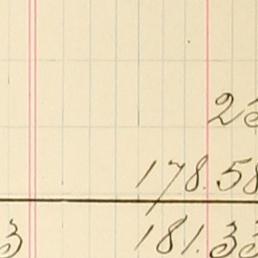 25
178.58
3 181.33